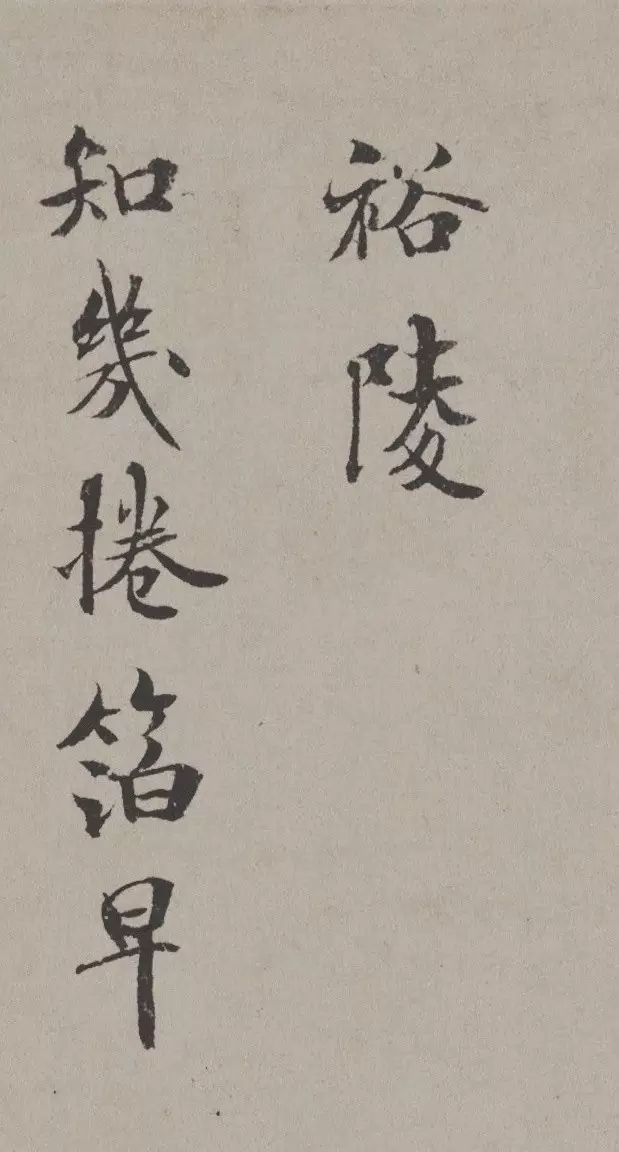 裕陵
知幾捲箔早